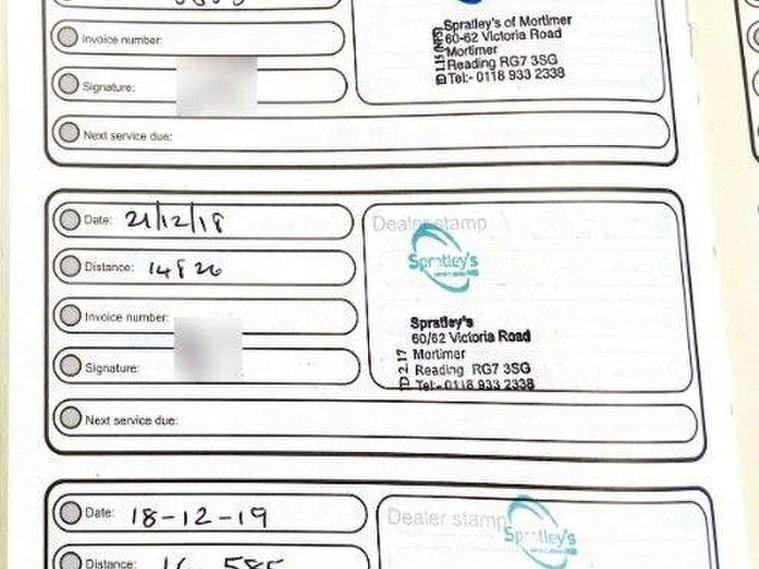 Invoice number:
Signature:
Next service due:
Spratley's of Mortimer
60-62 Victoria Road
Mortimer
Reading RG7 3SG
Tel:- 0118 933 2338
Date: 21/12/18
Distance: 14826
Invoice number:
Signature:
Next service due:
Dealer stamp
Spratley's
Spratley's
60/62 Victoria Road
TD 2.17
Mortimer
Reading RG7 3SG
Tel:- 0118 933 2338
Date: 18-12-19
Distance:
Dealer stamp
Spratley's